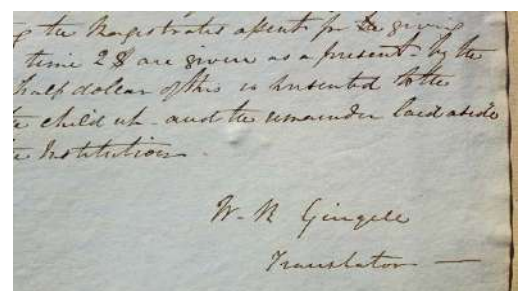 g the Magistrates assent for the giving
time 2$ are given as a present by the
half dollar of this is presented to the
e child up and the remainder laid aside
e Institution
W. R Gingell
Translator —